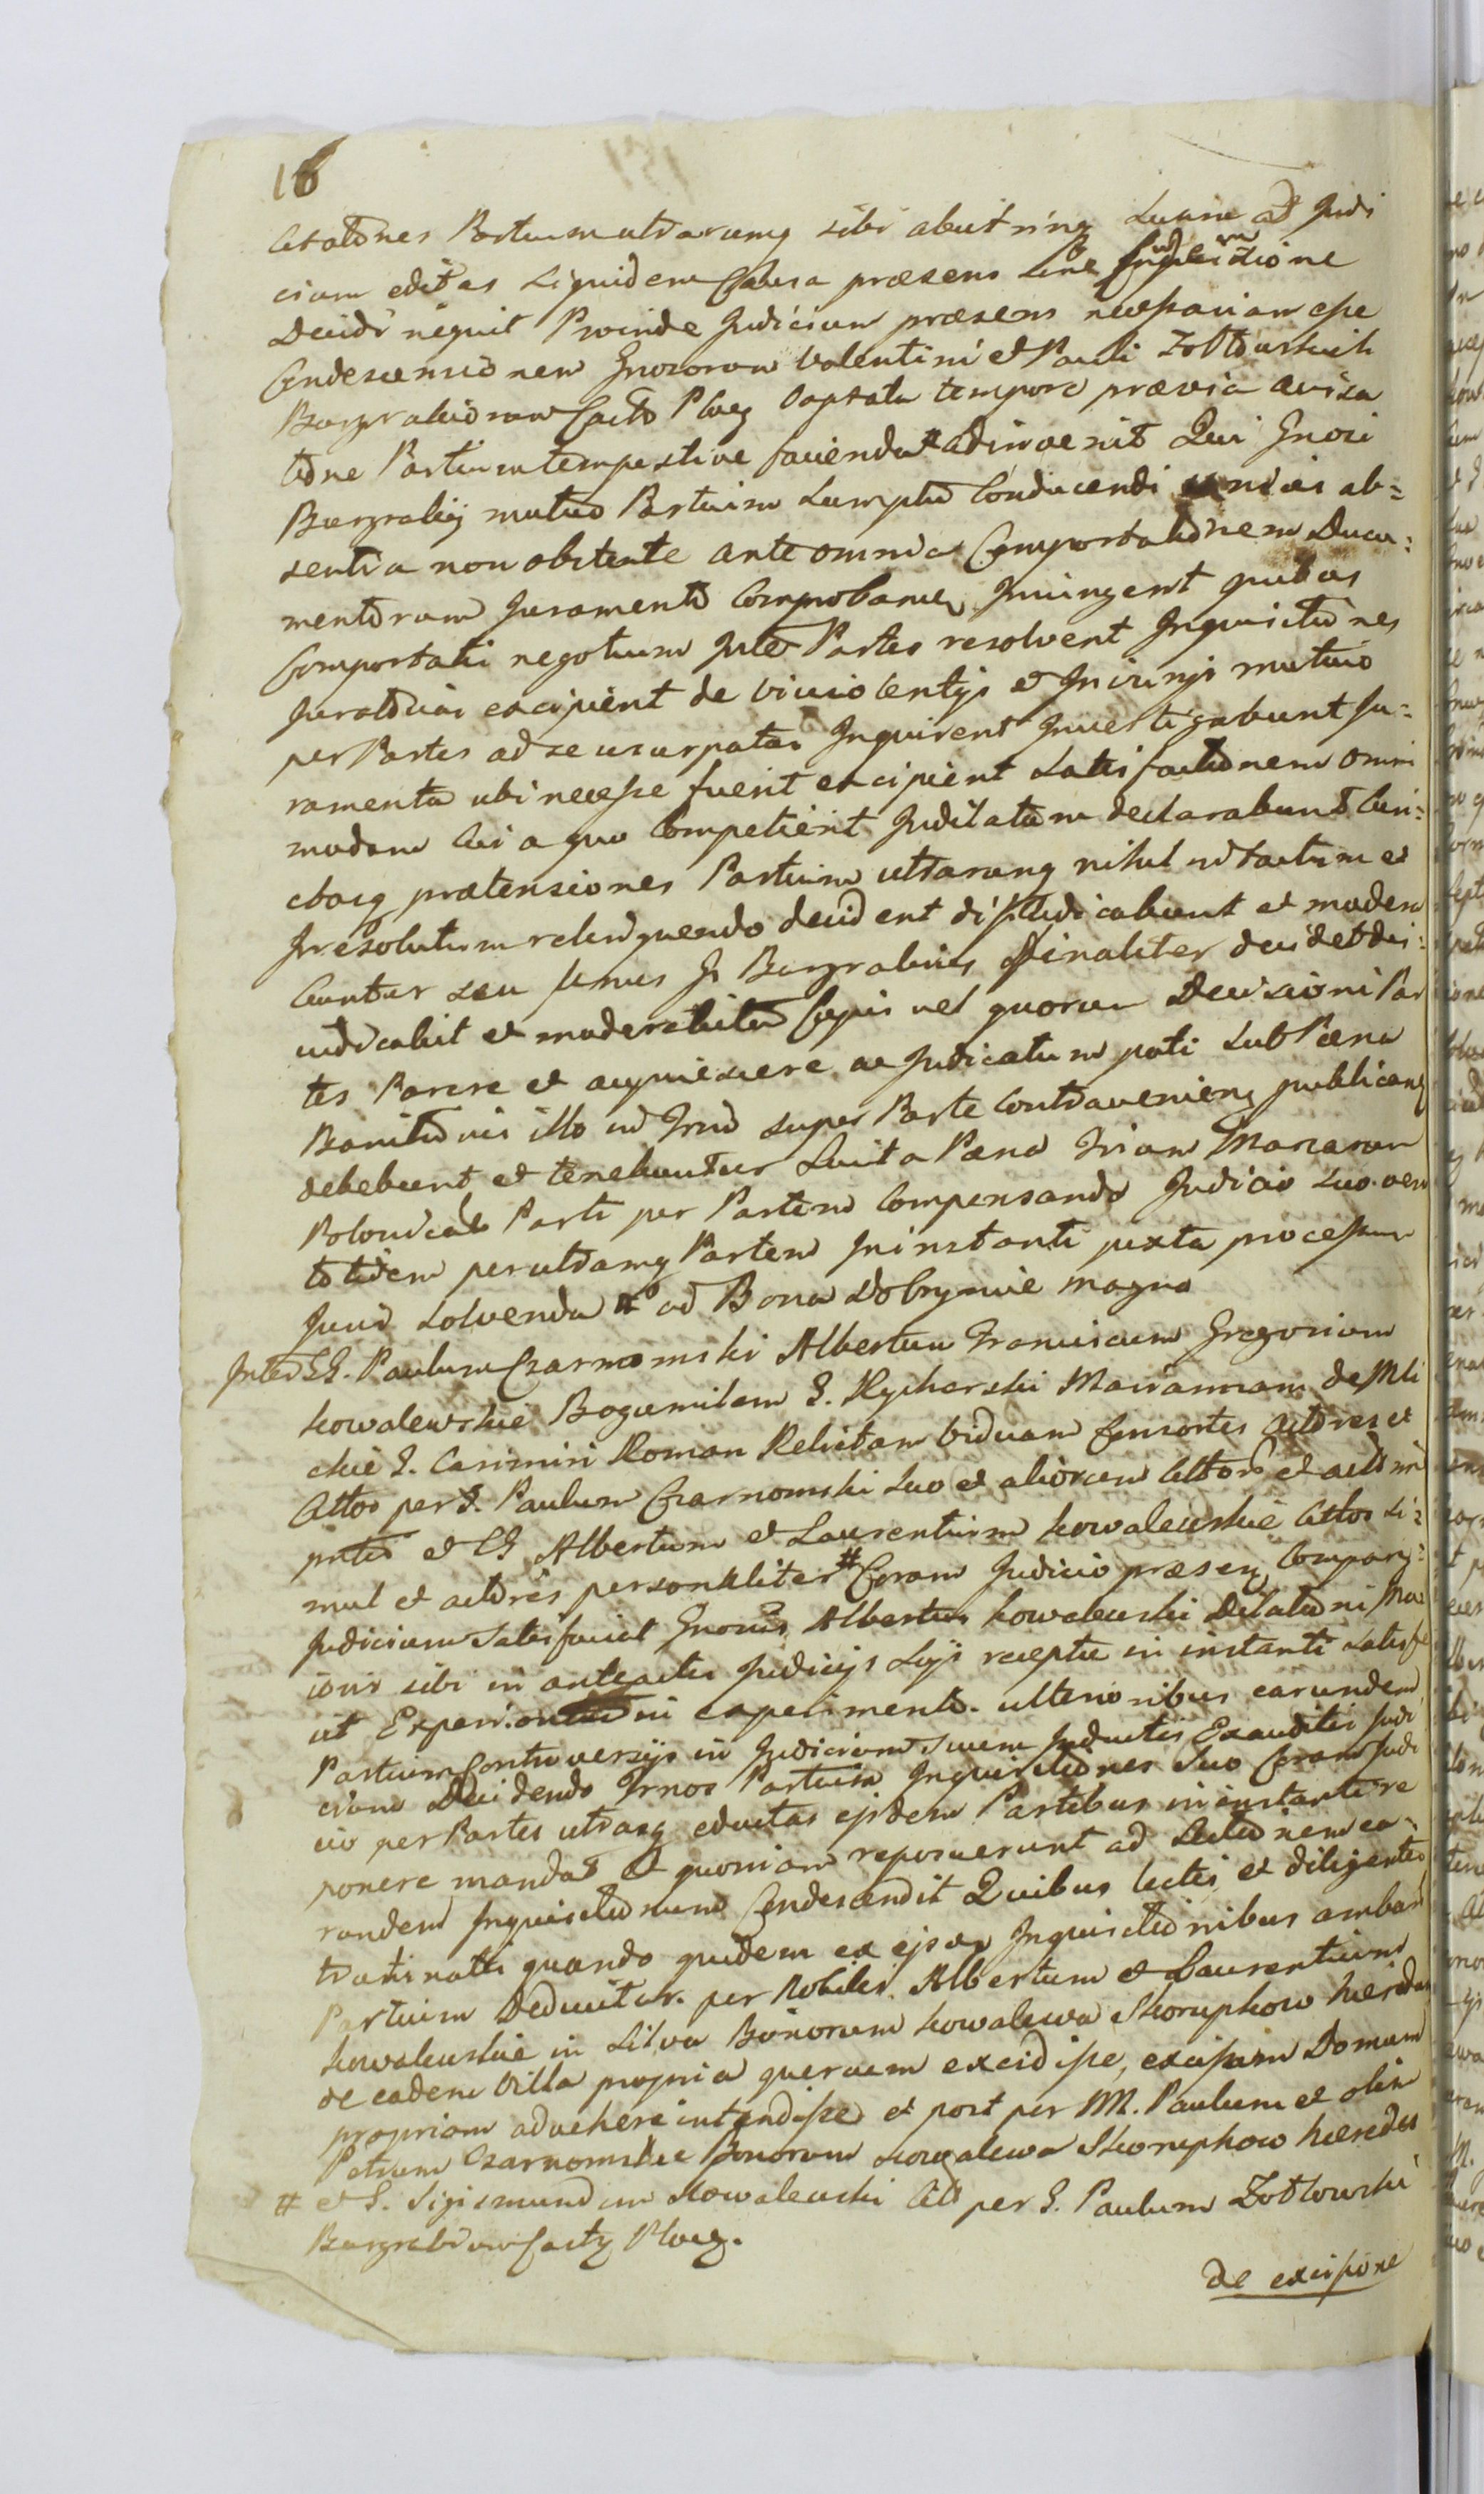 16
Citationes Partium utrarumq sibi ab utrinq suum ad Judi
cium editas Siquidem Causa præsens sine Inquisitione
Decidi nequit Proinde Judicium præsens necessariam esse
Condescensionem Gnosorum Valentini et Pauli Zottowskich
Burgrabiorum Castr Ploc Captato tempore prævia avisa
tione Partium tempestive facienda # adinvenit Qui Gnosi
Burgrabij mutuo Partium sumptu Conducendi unius ab=
sentia non obstante ante omnia Comportationem Docu=
mentorum Juramento Comprobanda Jniungent quibus
Comportatis negotium Jnter Partes resolvent Jnquisitiones
Juratorias excipient de violentijs et Jniurijs mutuo
per Partes ad se usurpatas Jnquirent Jnvestigabunt Ju=
ramenta ubi necesse fuerit excipient Satisfactionem omni
modam Cui a quo Competierit Judicatam declarabunt Cun=
ctasq prætensiones Partium utrarumq nihil intactum et
Jresolutum relinquendo decident dijudicabunt et modera
buntur seu unus G Burgrabius finaliter decidet di=
iudicabit et moderabitur Cujus vel quorum Decisioni Par
tes Parere et acquiescere ac Judicatum pati sub Pæna
Banitionis illo ad Jnd super Parte Contraveniens publicand
debebunt et tenebuntur Luita Pæna Trium Marcarum
Polonical Parti per Partem Compensando Judicio suo vero
totidem per utramq Partem Jn instanti juxta processum
Juris solvenda # ad Bona Dobrynie magna
Jnter GG. Paulum Czarnomski Albertum Franciscum Gregorium
Kowalewskie Bogumilam G. Rycharski Mariannam de Mli
ckie G. Casimiri Roman Relictam Viduam Consortes actores et
Cittos per G. Paulum Czarnomski suo et aliorum Cittor et actorum
pnter et GG Albertum et Laurentium Kowalewskie Cittos si=
mul et actores personaliter # Coram Judicio præsenq Comparq=
Judicium Satisfaciat Gnosus Albertus Kowalewski Dilationi Ma
ioris sibi in anteactis Judicijs Sijs receptæ in instanti satisfe
ut Experi in experimento. ulterioribus earundem
Partium Controversijs in Judicium suum Jnductis Exauditis Judi
cium Decidendo Trnos Partium Jnquisitiones suo Coram Judi
cio per Partes utrasq eductas ejsdem Partibus in instanti re
ponere mandat Et quoniam reposuerunt ad Lectionem ea=
rundem Jnquisitionum Condescendit Quibus lectis et diligenter
tratinatis quando quidem ex ejsdem Jnquisitionibus ambarum
Partium Deducitur. per Nobiles Albertum et Laurentium
Kowalewskie in Silva Bonorum Kowalewa Skorupkow hæredes
de eadem Villa propria quercum excidisse, excisam Domum
propriam advehere intendisse et post per M. Paulum et olim
Petrum Czarnomskie Bonorum Kowalewa Skorupkow hæredes
# et G. Sigismundum Kowalewski Citt per G. Paulum Zottowski
Burgrabium Castq Ploc.
de excisione